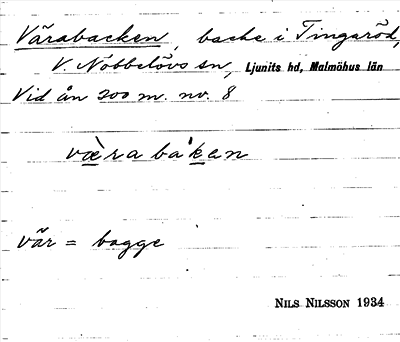 Värabacken, backe i Tingaröd,
V. Nöbbelövs sn, Ljunits hd, Malmöhus län
Vid ån 200 m. nv. 8
væ̀ra baken
vär = bagge
NILS NILSSON 1934